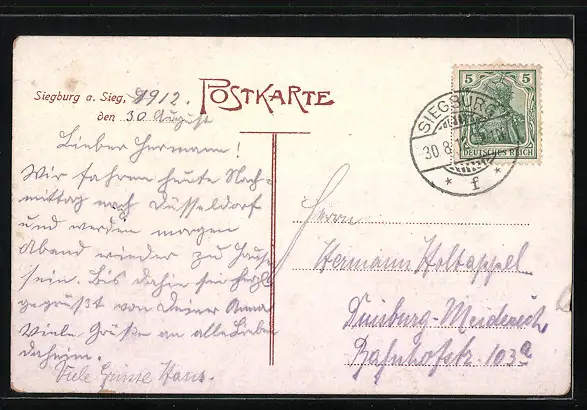 Siegburg a. Sieg, 1912.
den 30 August
POSTKARTE
Lieber Hermann!
Wir fahren heute Nach-
mittag nach Düsseldorf
und werden morgen
Abend wieder zu Hause
sein. Bis dahin sei herzl.
gegrüßt von Deiner Anna
Viele Grüße an alle Lieben
daheim.
Viele Grüsse Hans.
5 5
DEUTSCHES REICH
SIEGBURG
30.8
* f *
Herrn
Hermann Holtappel
Duisburg-Meiderich
Bahnhofstr. 103a